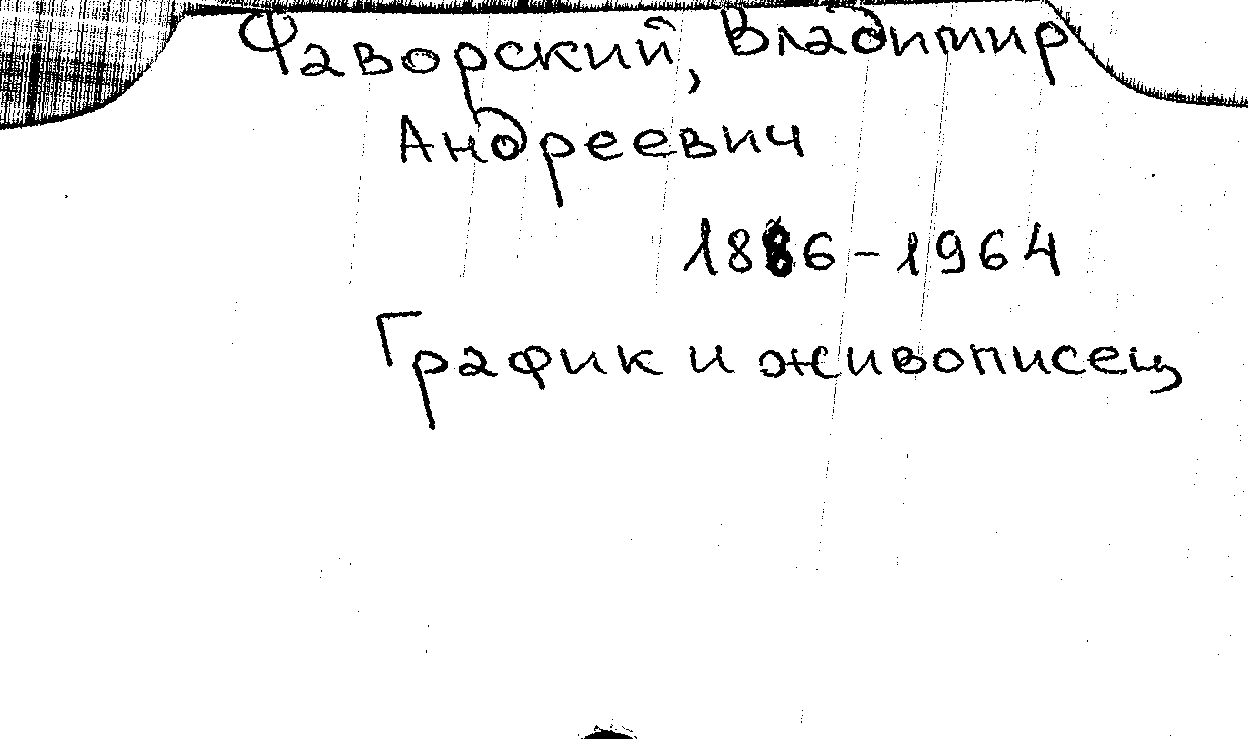 Фаворский, Владимир
Андреевич
1886-1964
График и живописец